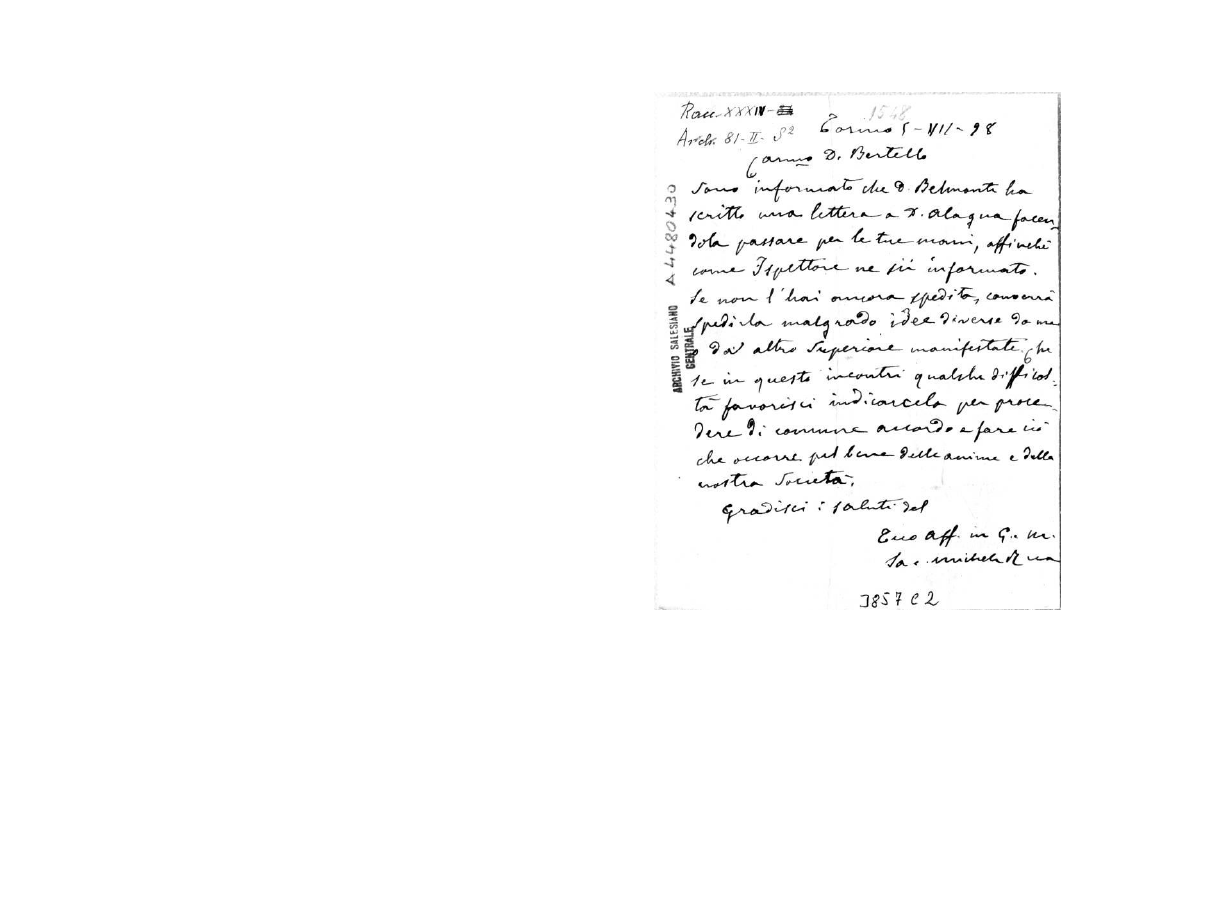 Racc. XXXIV-
1548
Arch. 81-II- S²
Torino 5-VII-98
Carmo D. Bertello
Sono informato che D. Belmonte ha
scritto una lettera a D. Alaqua facen
dola passare per le tue mani, affinchè
come Ispettore ne sii informato.
Se non l'hai ancora spedita, converrà
spedirla malgrado idee diverse da me
da altro Superiore manifestate. Che
se in questo incontri qualche difficol-
tà favorisci indicarcela per proce-
dere di comune accordo e fare ciò
che occorre pel bene delle anime e della
nostra Società.
Gradisci i saluti del
Tuo Aff. in G. e M.
Sac. Michele Rua
3857 C 2
A 4480430
ARCHIVIO SALESIANO
CENTRALE